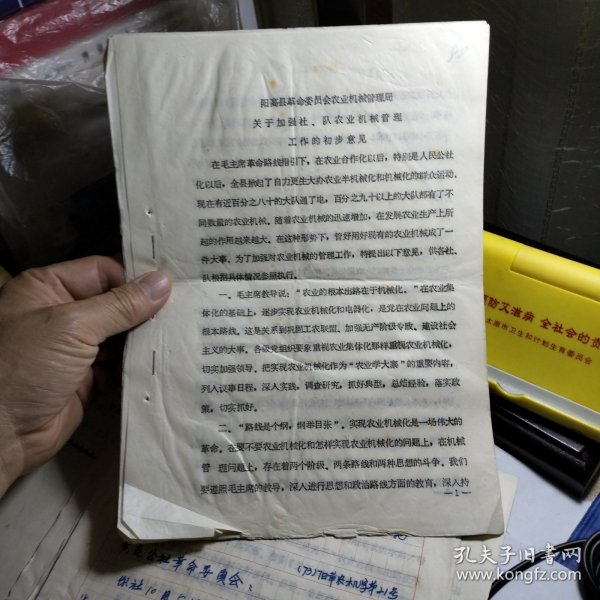 阳高县革命委员会农业机械管理局
关于加强社、队农业机械管理
工作的初步意见
在毛主席革命路线指引下，在农业合作化以后，特别是人民公社
化以后，全县掀起了自力更生大办农业半机械化和机械化的群众运动，
现在有近百分之八十的大队通了电，百分之九十以上的大队都有了不
同数量的农业机械。随着农业机械的迅速增加，在发展农业生产上所
起的作用越来越大。在这种形势下，管好用好现有的农业机械成了一
件大事。为了加强对农业机械的管理工作，特提出以下意见，供各社、
队根据具体情况参照执行。
一、毛主席教导说："农业的根本出路在于机械化。"在农业集
体化的基础上，逐步实现农业机械化和电器化，是党在农业问题上的
根本路线。这是关系到巩固工农联盟，加强无产阶级专政、建设社会
主义的大事。各级党组织要象重视农业集体化那样重视农业机械化，
切实加强领导，把实现农业机械化作为"农业学大寨"的重要内容，
列入议事日程，深入实践，调查研究，抓好典型，总结经验，落实政
策，切实抓好。
二、"路线是个纲，纲举目张"。实现农业机械化是一场伟大的
革命。在要不要农业机械化和怎样实现农业机械化的问题上，在机械
管理问题上，存在着两个阶级、两条路线和两种思想的斗争。我们
要遵照毛主席的教导，深入进行思想和政治路线方面的教育，深入持
—1—
防艾滋病 全社会的责
太原市卫生和计划生育委员会
公社革命委员会：
孔夫子旧书网
www.kongfz.com